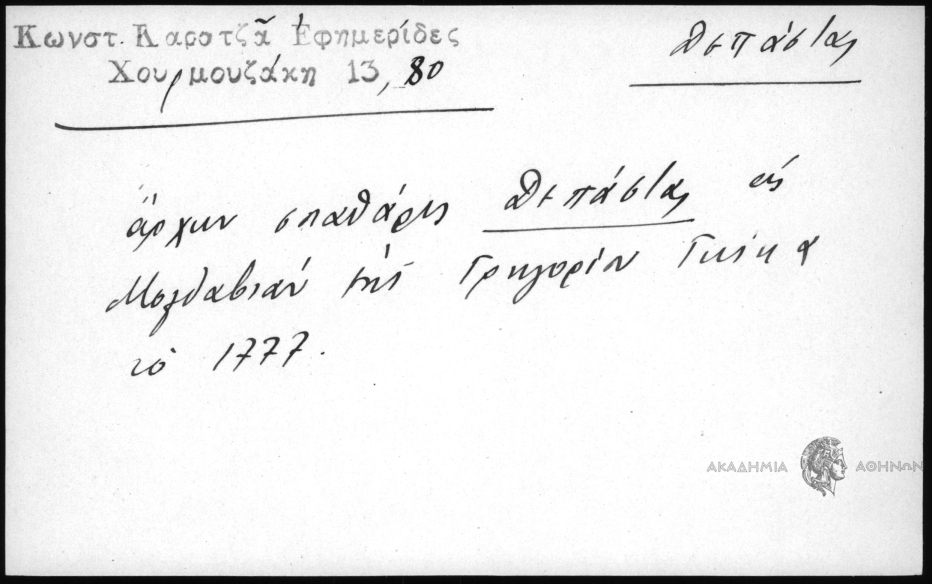 Κωνστ. Καρατζᾶ Ἐφημερίδες
Χουρμουζάκη 13, 80
Δεπάστας
ἄρχων σπαθάρης Δεπάστας εἰς
Μολδαβίαν ἐπὶ Γρηγορίου Γκίκα
τὸ 1777.
ΑΚΑΔΗΜΙΑ ΑΘΗΝΩΝ